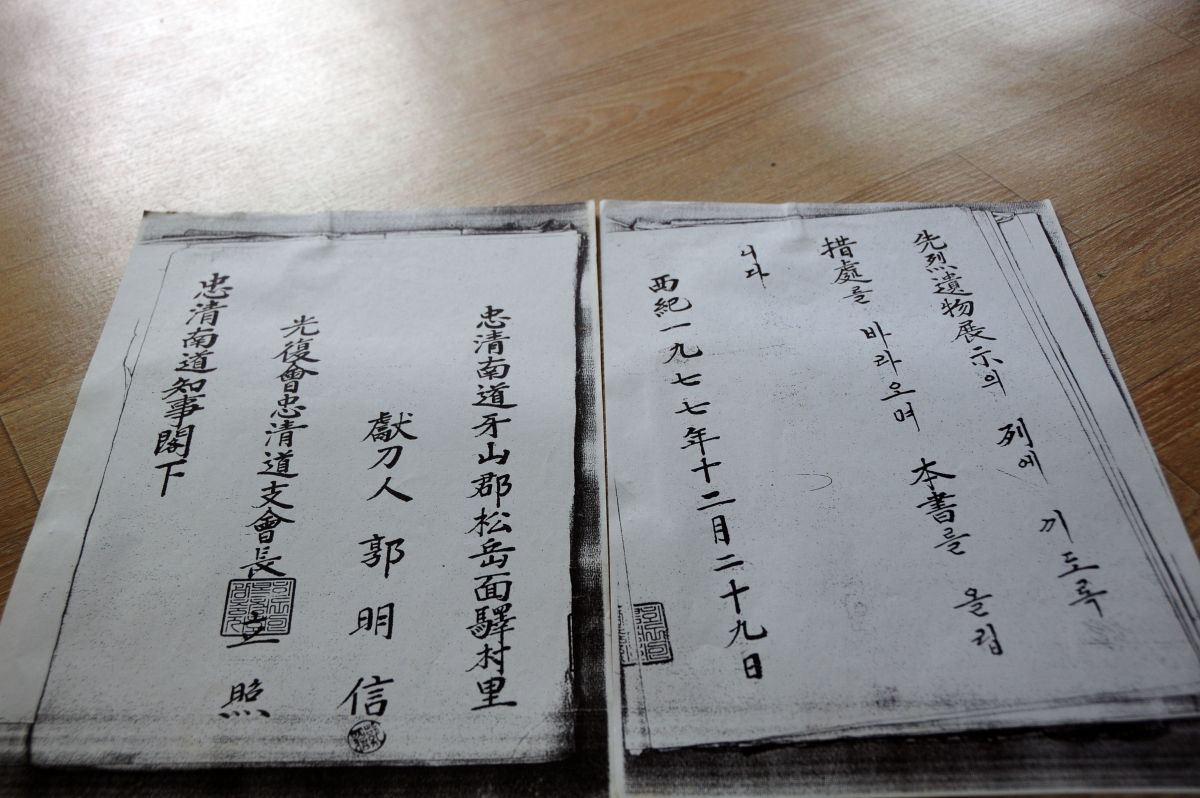 先烈遺物展示의 列에 끼도록
措處를 바라오며 本書를 올립
니다
西紀一九七七年十二月二十九日
忠清南道牙山郡松岳面驛村里
獻刀人 郭明信
光復會忠清道支會長 立照
忠清南道知事閣下